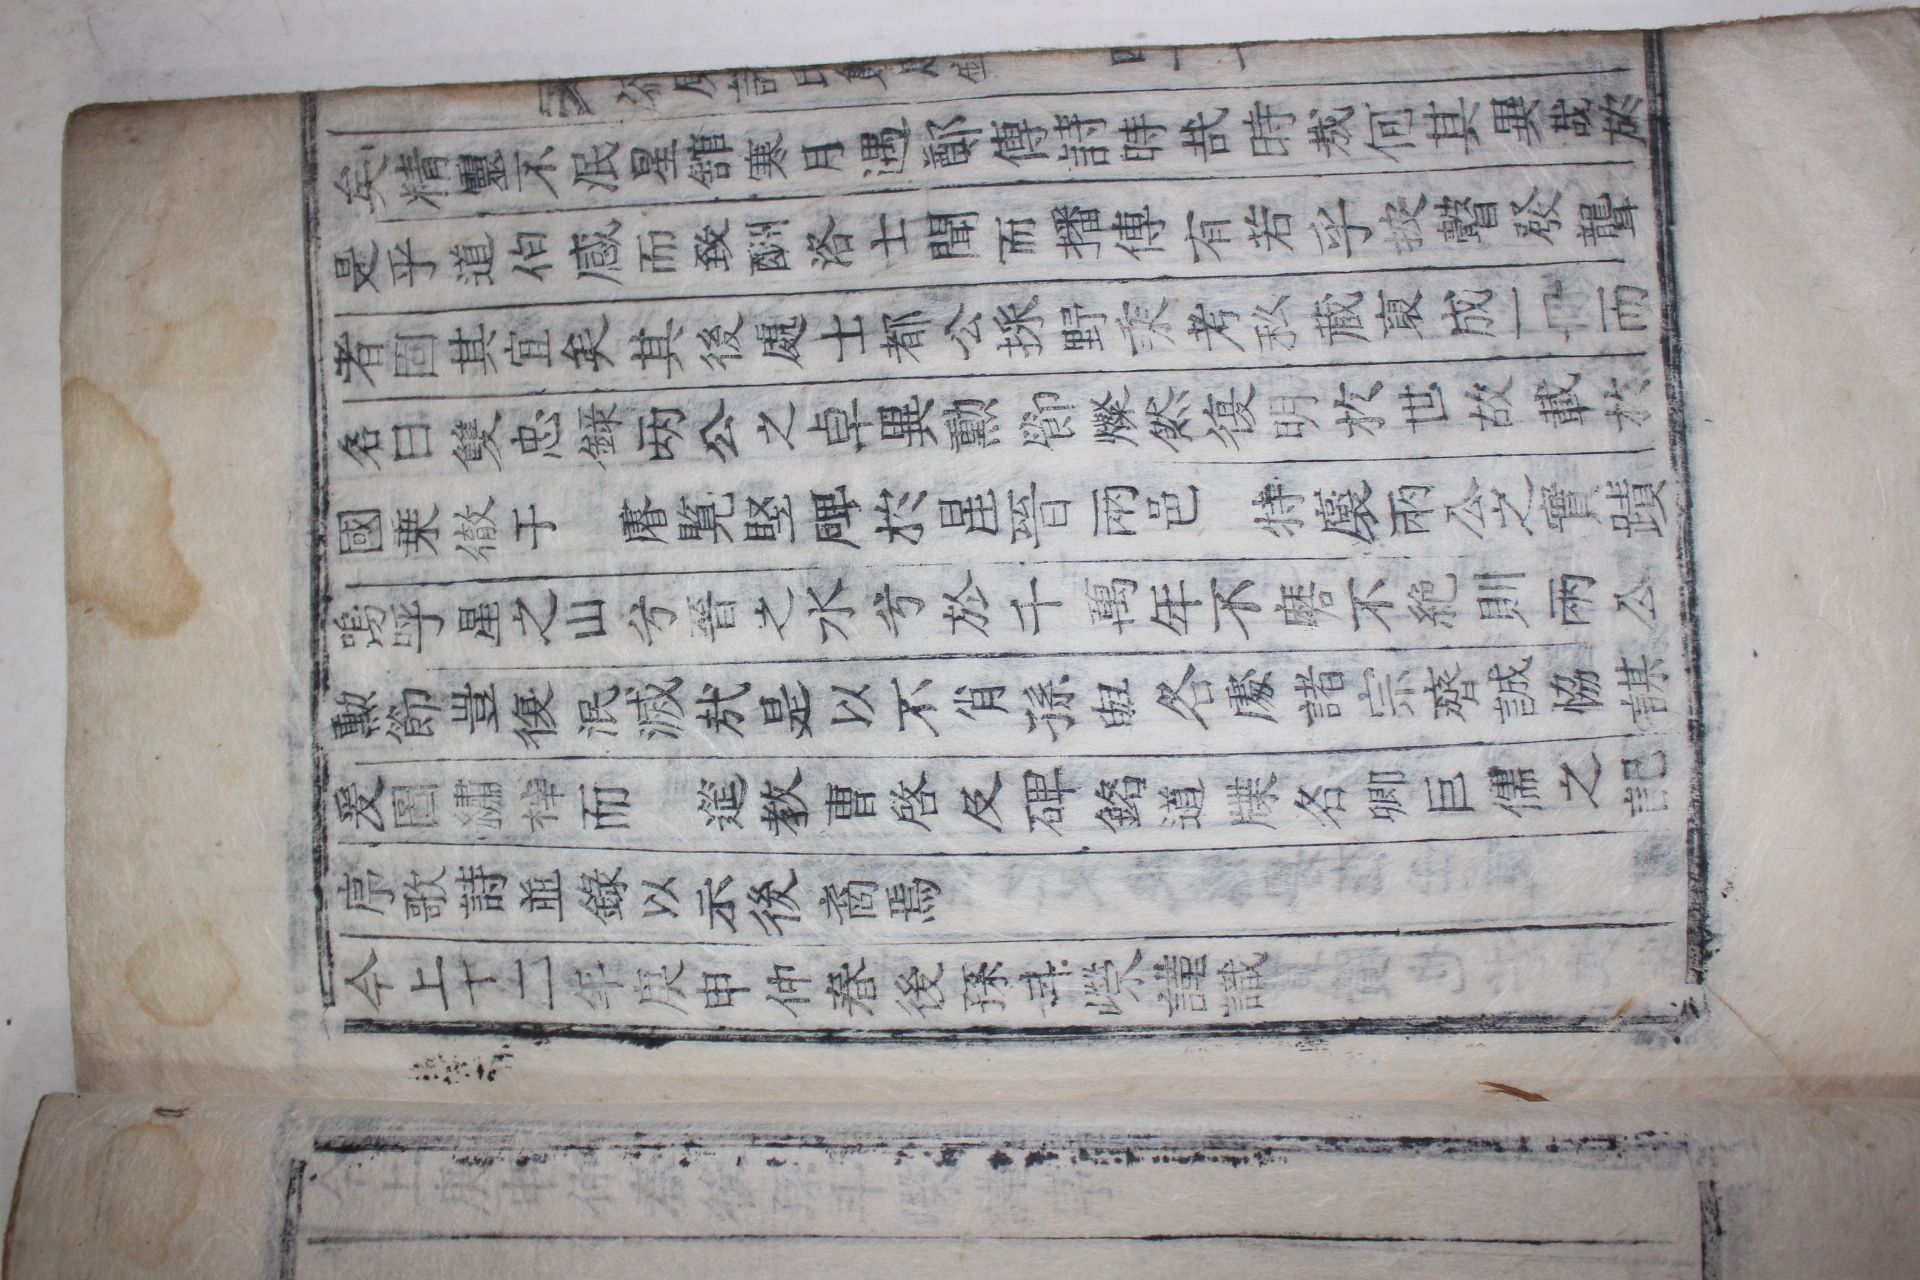 矣精靈不泯星館寒月遇鄭傅詩時哉時哉何其異哉於
是乎道伯感而致酹洛士聞而播傳有若乎披瞽發聾
者固其宜矣其後處士都公採野乘考秘藏裒成一冊而
名曰雙忠錄兩公之卓異勳節燦然復明於世故載於
國乘徹于 睿覽竪碑於星晉兩邑 特褒兩公之實蹟
嗚呼星之山兮晉之水兮於千萬年不磨不絶則兩公
勳節豈復泯滅哉是以不肖孫與各處諸宗齊誠協謀
爰圖繡梓而 筵敎曹啓及碑銘道牒名卿巨儒之記
序歌詩並錄以示後裔焉
今上十二年庚申仲春後孫斗榮謹識